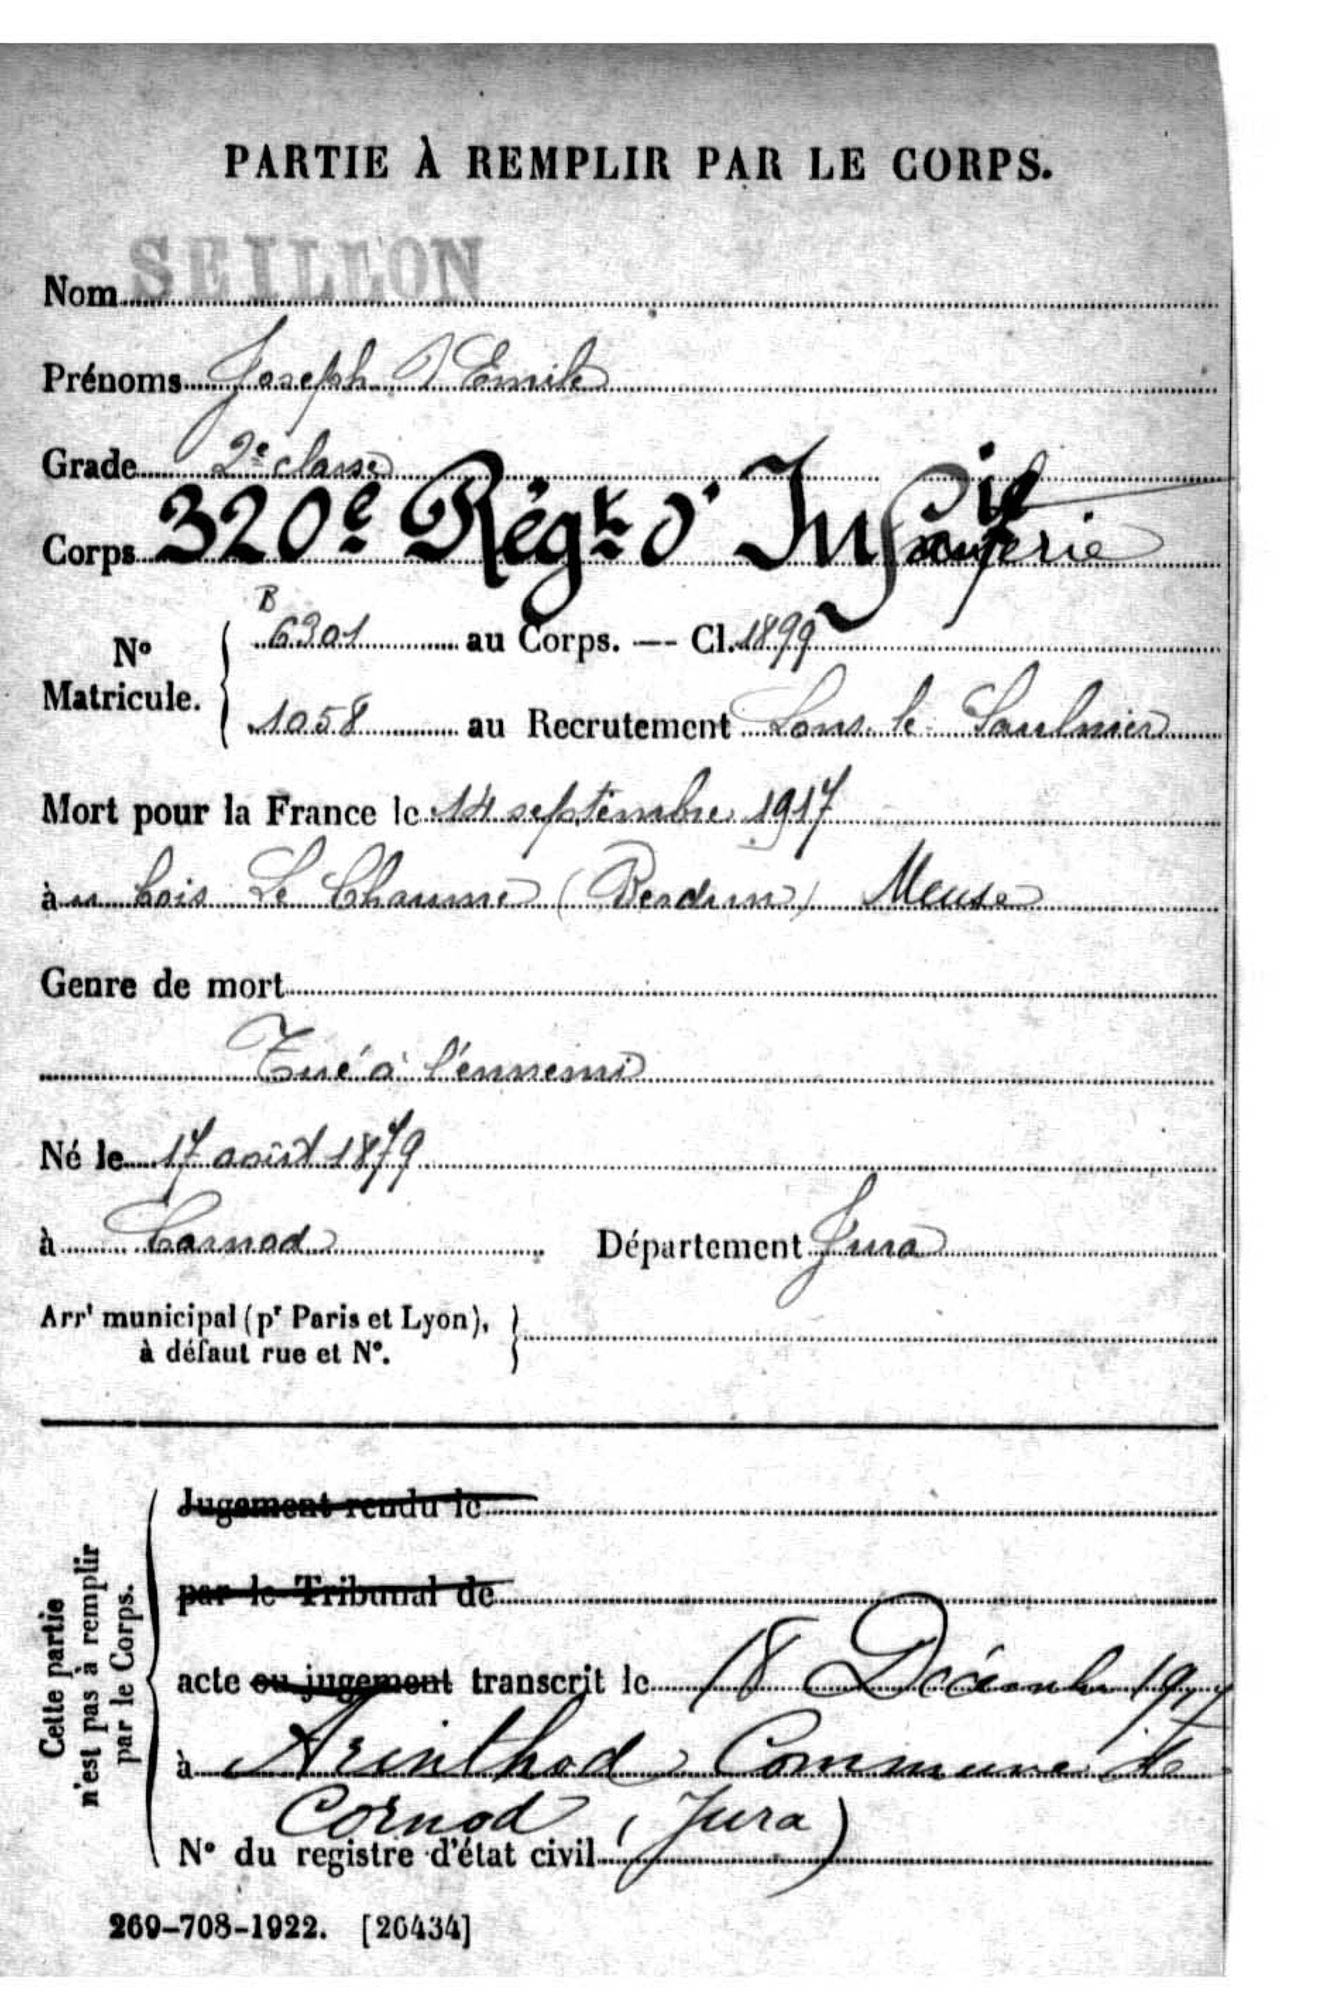 PARTIE À REMPLIR PAR LE CORPS.
Nom SEILLON
Prénoms Joseph Emile
Grade 2e classe
Corps 320e Régt d' Infanterie
B
No Matricule. 6301 au Corps. — Cl. 1899
1058 au Recrutement Lons le Saulnier
Mort pour la France le 14 septembre 1917
à u bois Le Chaume (Verdun) Meuse
Genre de mort
Tué à l'ennemi
Né le 17 août 1879
à Cornod Département Jura
Arrt municipal (pr Paris et Lyon),
à défaut rue et No.
Cette partie
n'est pas à remplir
par le Corps.
Jugement rendu le
par le Tribunal de
acte ou jugement transcrit le 18 Décembre 1917
à Arinthod Commune de
Cornod (Jura)
No du registre d'état civil
269-708-1922. [26434]